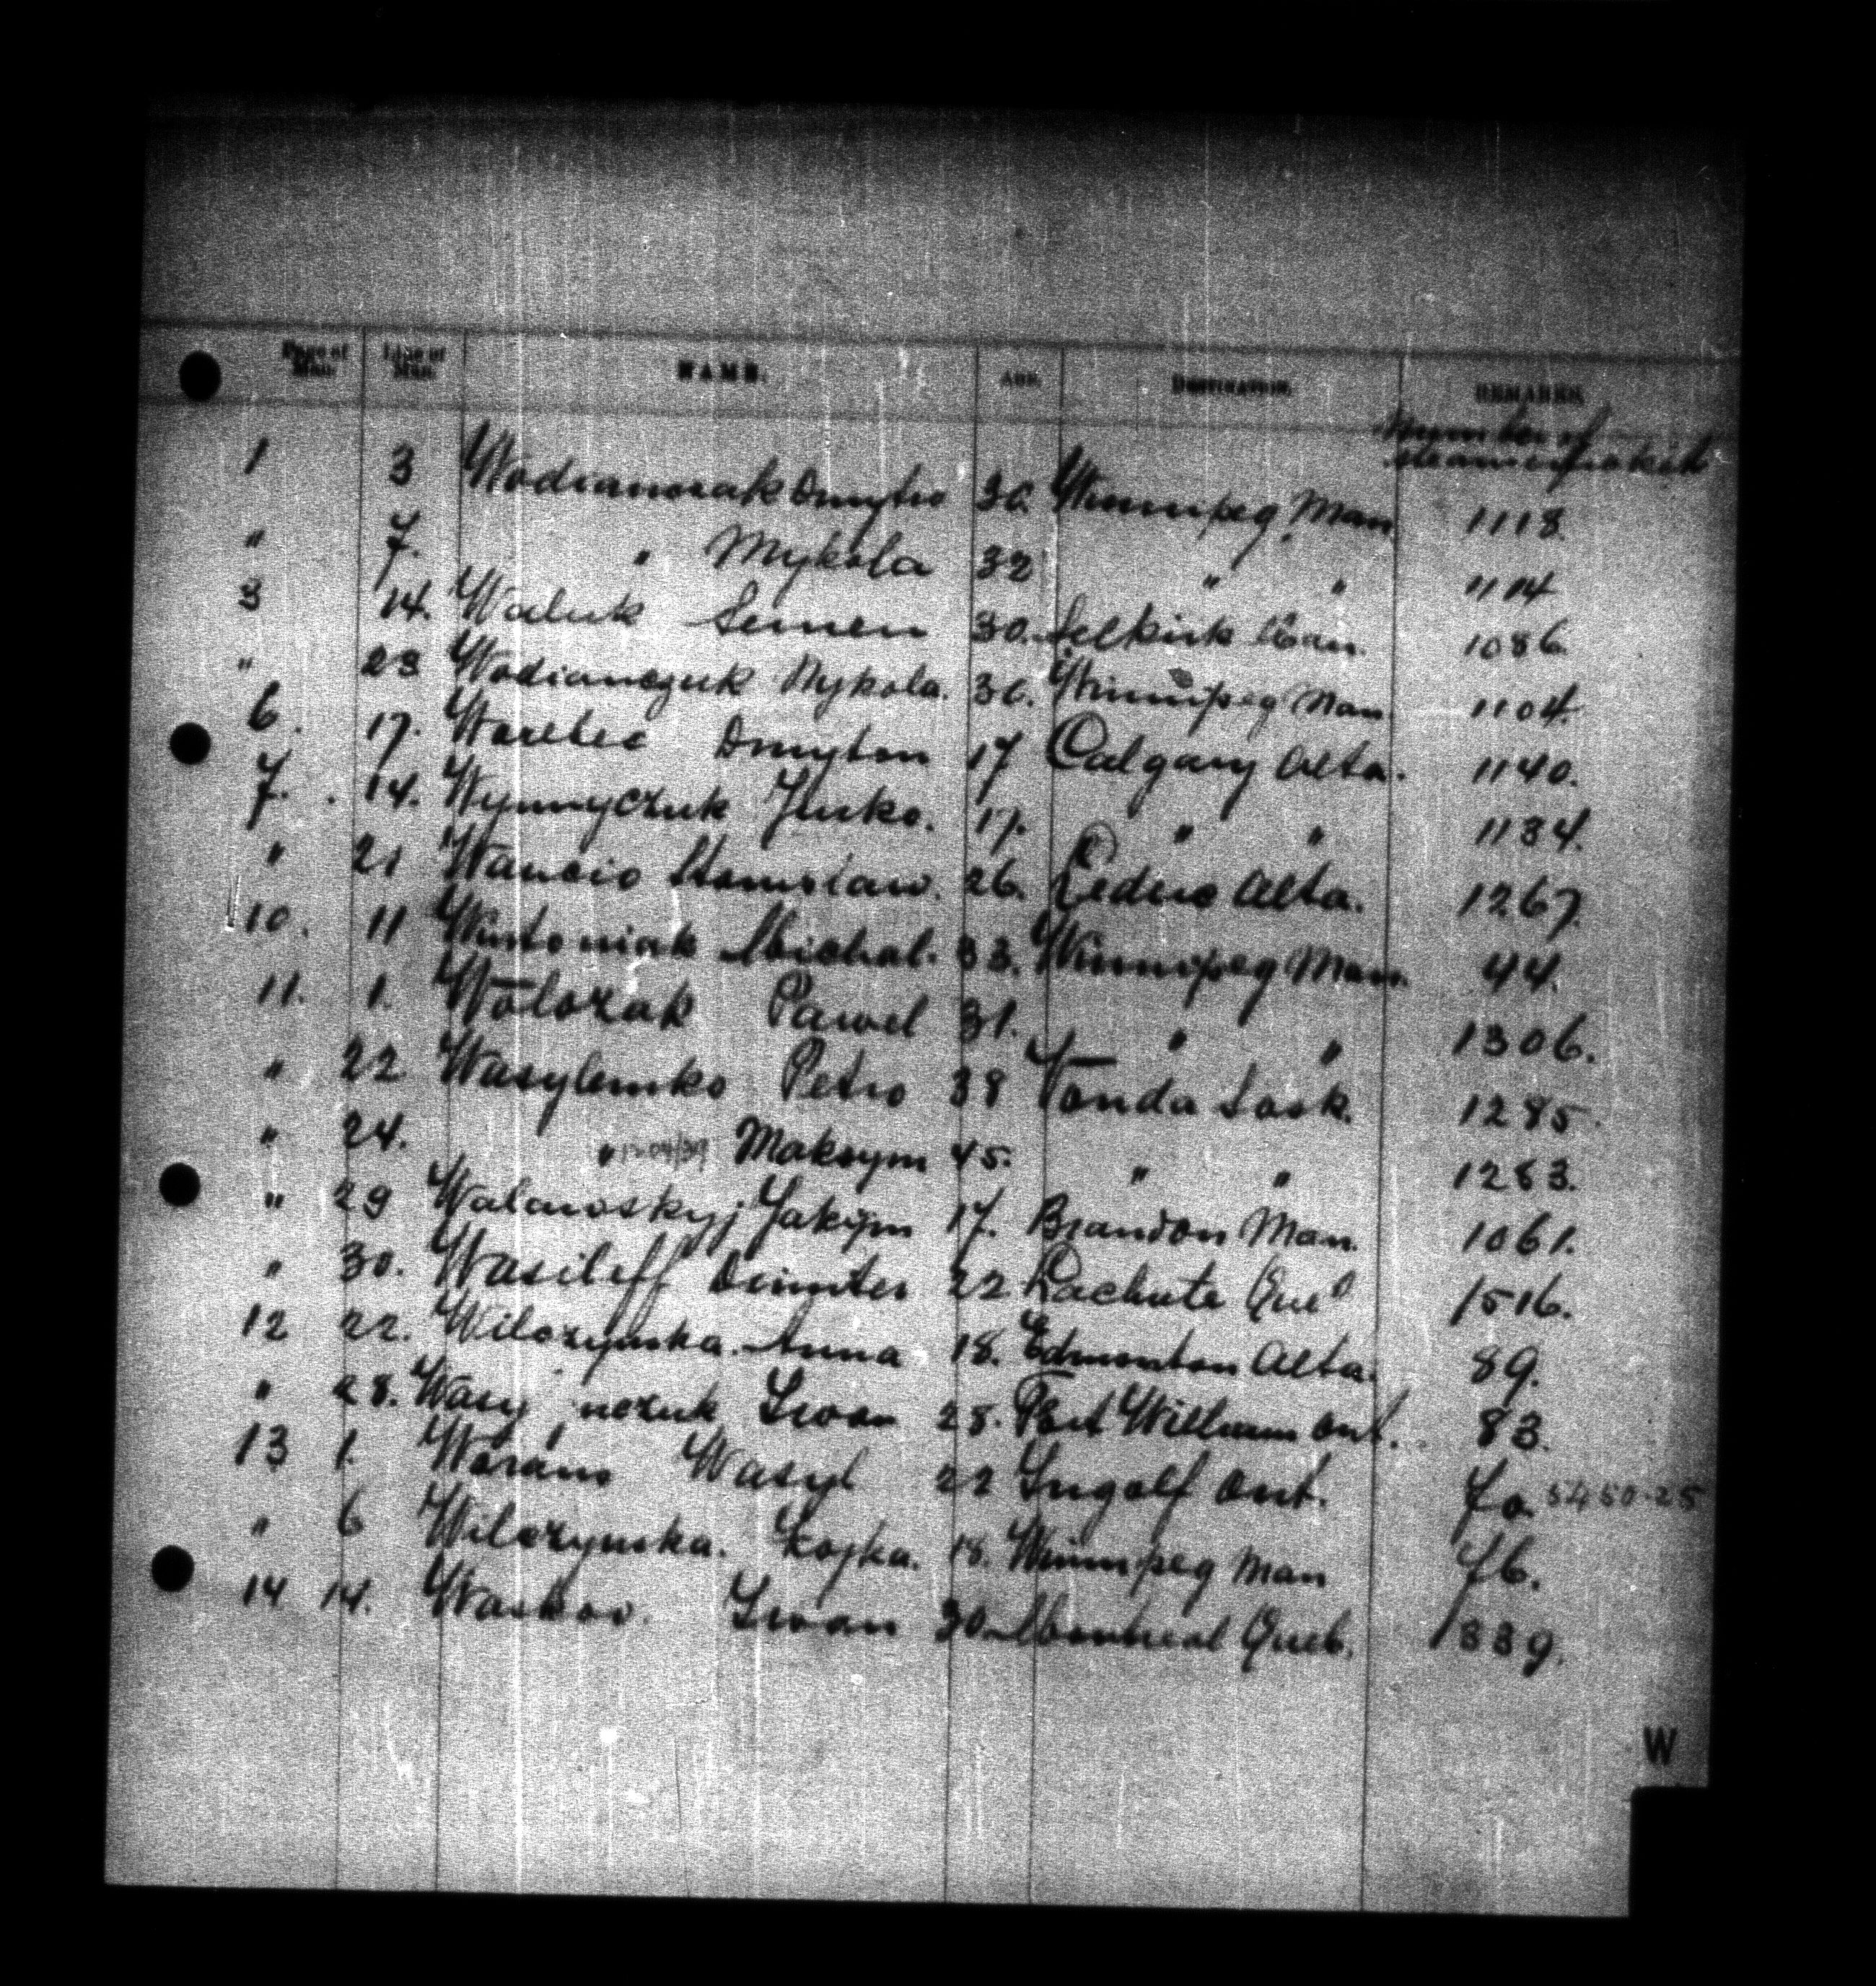 Page of Man. Line of Man. NAME. AGE. DESTINATION. REMARKS.
Number of
steamer ticket
1 3 Wodianczak Dmytro 30. Winnipeg Man 1118.
" 7. " Mykola 32 " " 1114
3 14. Waluk Semen 30. Selkirk Man. 1086.
" 23 Wodianczuk Mykola. 36. Winnipeg Man. 1104.
6. 17. Dmyton 17 Calgary Alta. 1140.
7. 14. Wynnyczuk 17. " " 1134.
" 21 Stanislaw. 26. Leduc Alta. 1267.
10. 11 Michal. 33. Winnipeg Man. 44.
11. 1. Wolozak Pawel 31. " " 1306.
" 22 Wasylenko Petro 38 Vonda Sask. 1285.
" 24. " Maksym 45. " " 1283.
" 29 Jakym 17. Brandon Man. 1061.
" 30. Wasileff Dimiter 22 Lachute Que 1516.
12 22. Wilczynska. Anna 18. Edmonton Alta. 89.
" 28. Iwan 28. Fort William Ont. 83.
13 1. Wasyl 22 Ingolf Ont. 70. 5450-25
" 6 Wilczynska. Zofka. 18. Winnipeg Man 76.
14 14. Waskow. Iwan 30. Montreal Queb. 1339.
W